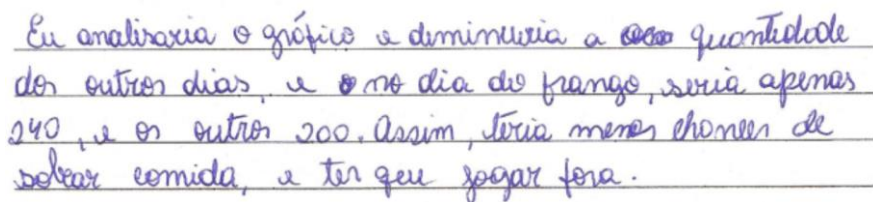 Eu analisaria o gráfico e deminuiria a quantidade
dos outros dias, e no dia do frango, seria apenas
240, e os outros 200. Assim, teria menos chances de
sobrar comida, e ter que jogar fora.